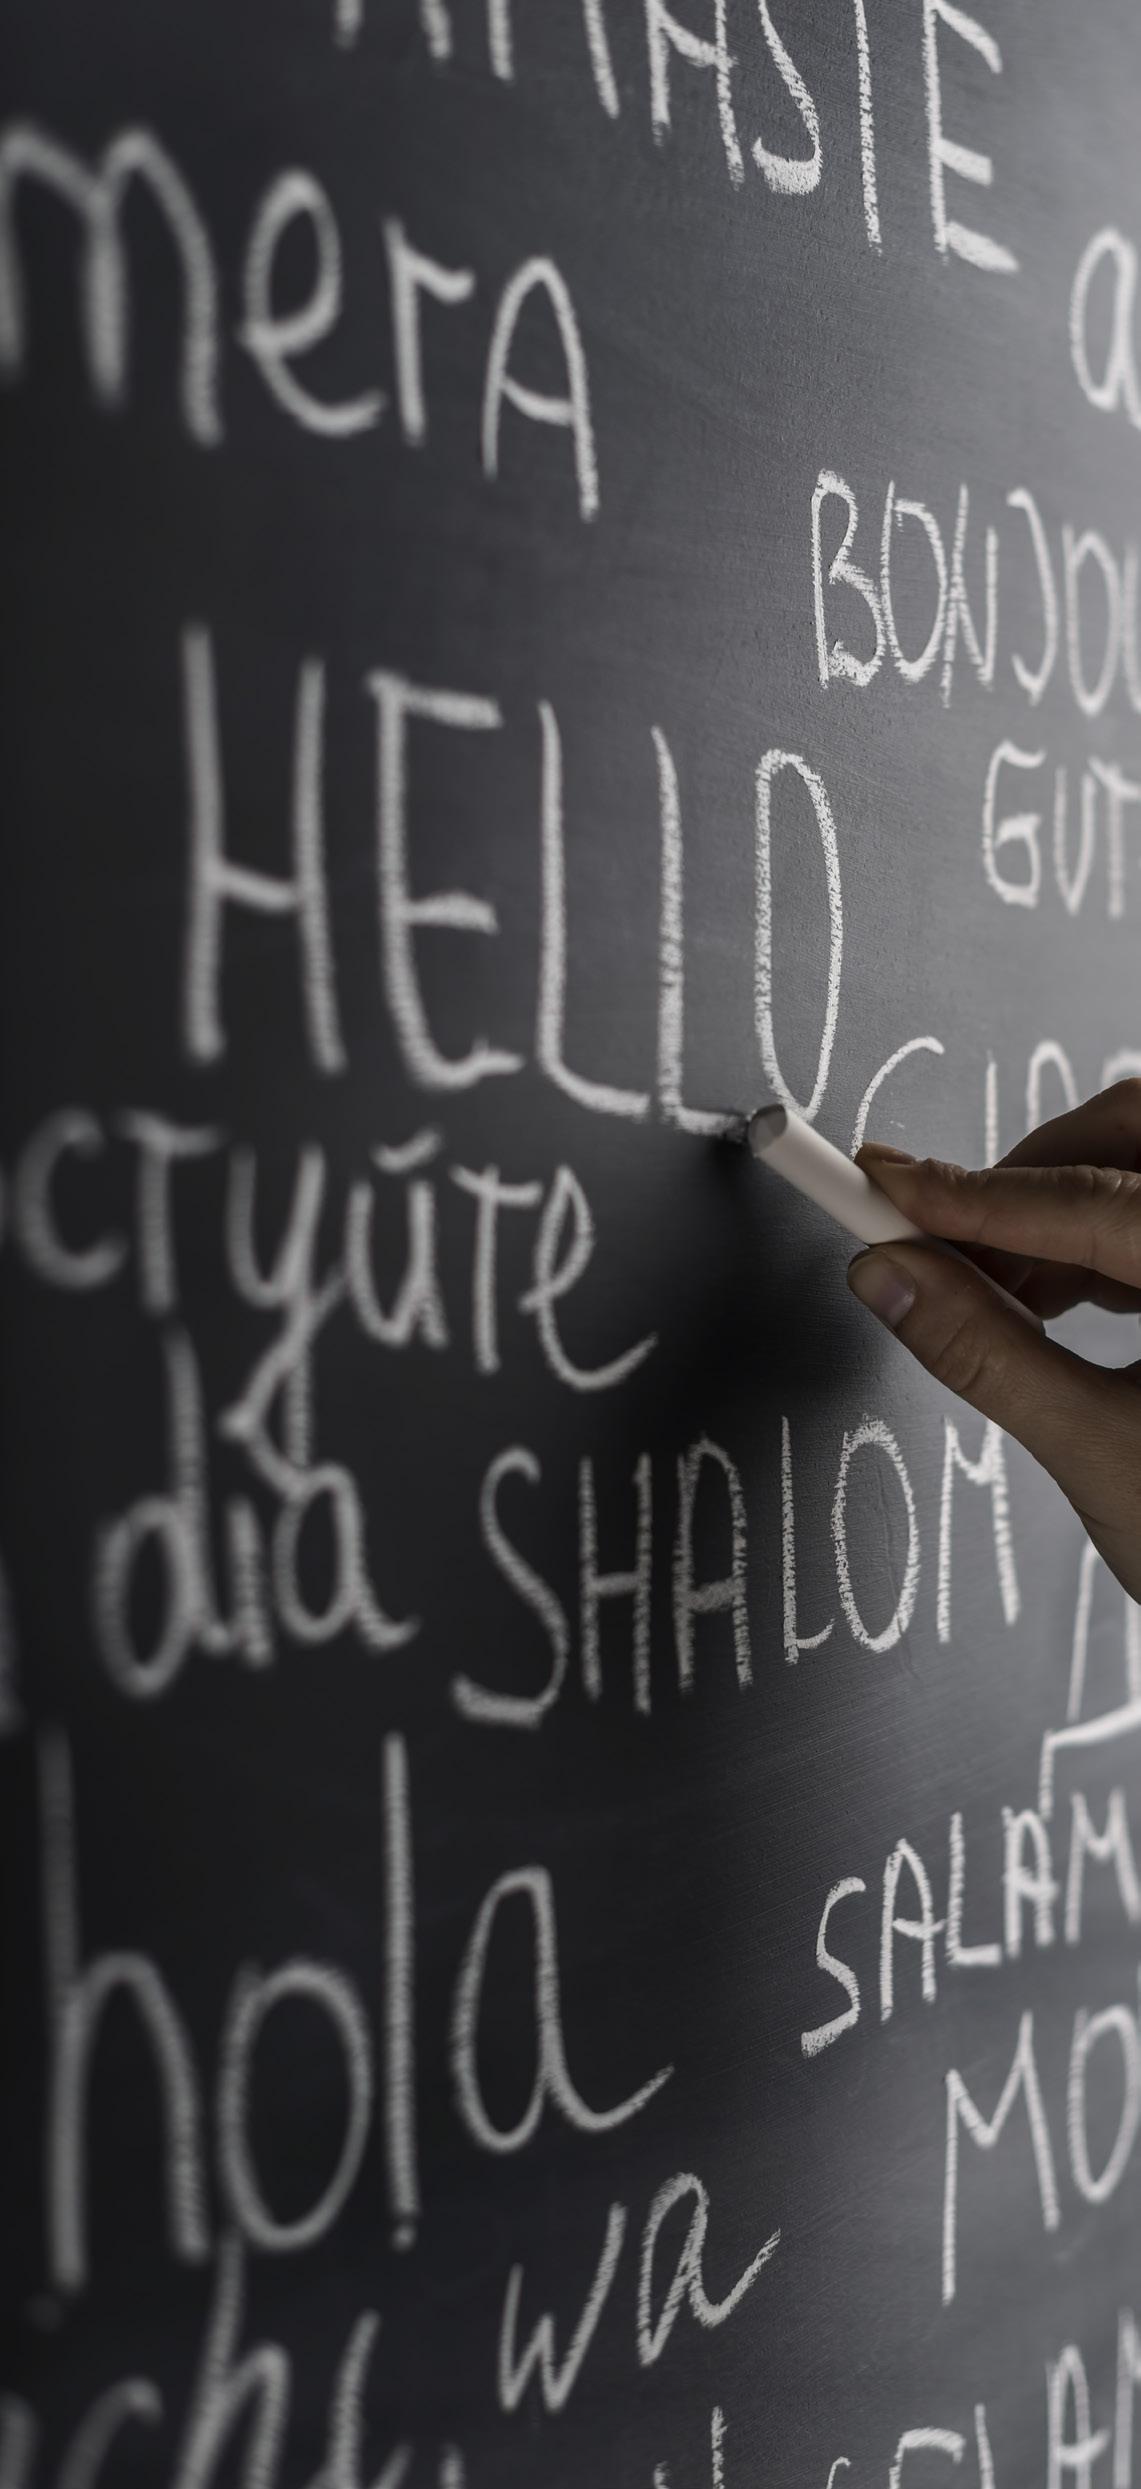 MASTE
merA
BONJOU
GUT
HELLO
CIA
стуйте
dia SHALOM
Д
hola
SALAM
MO
wa